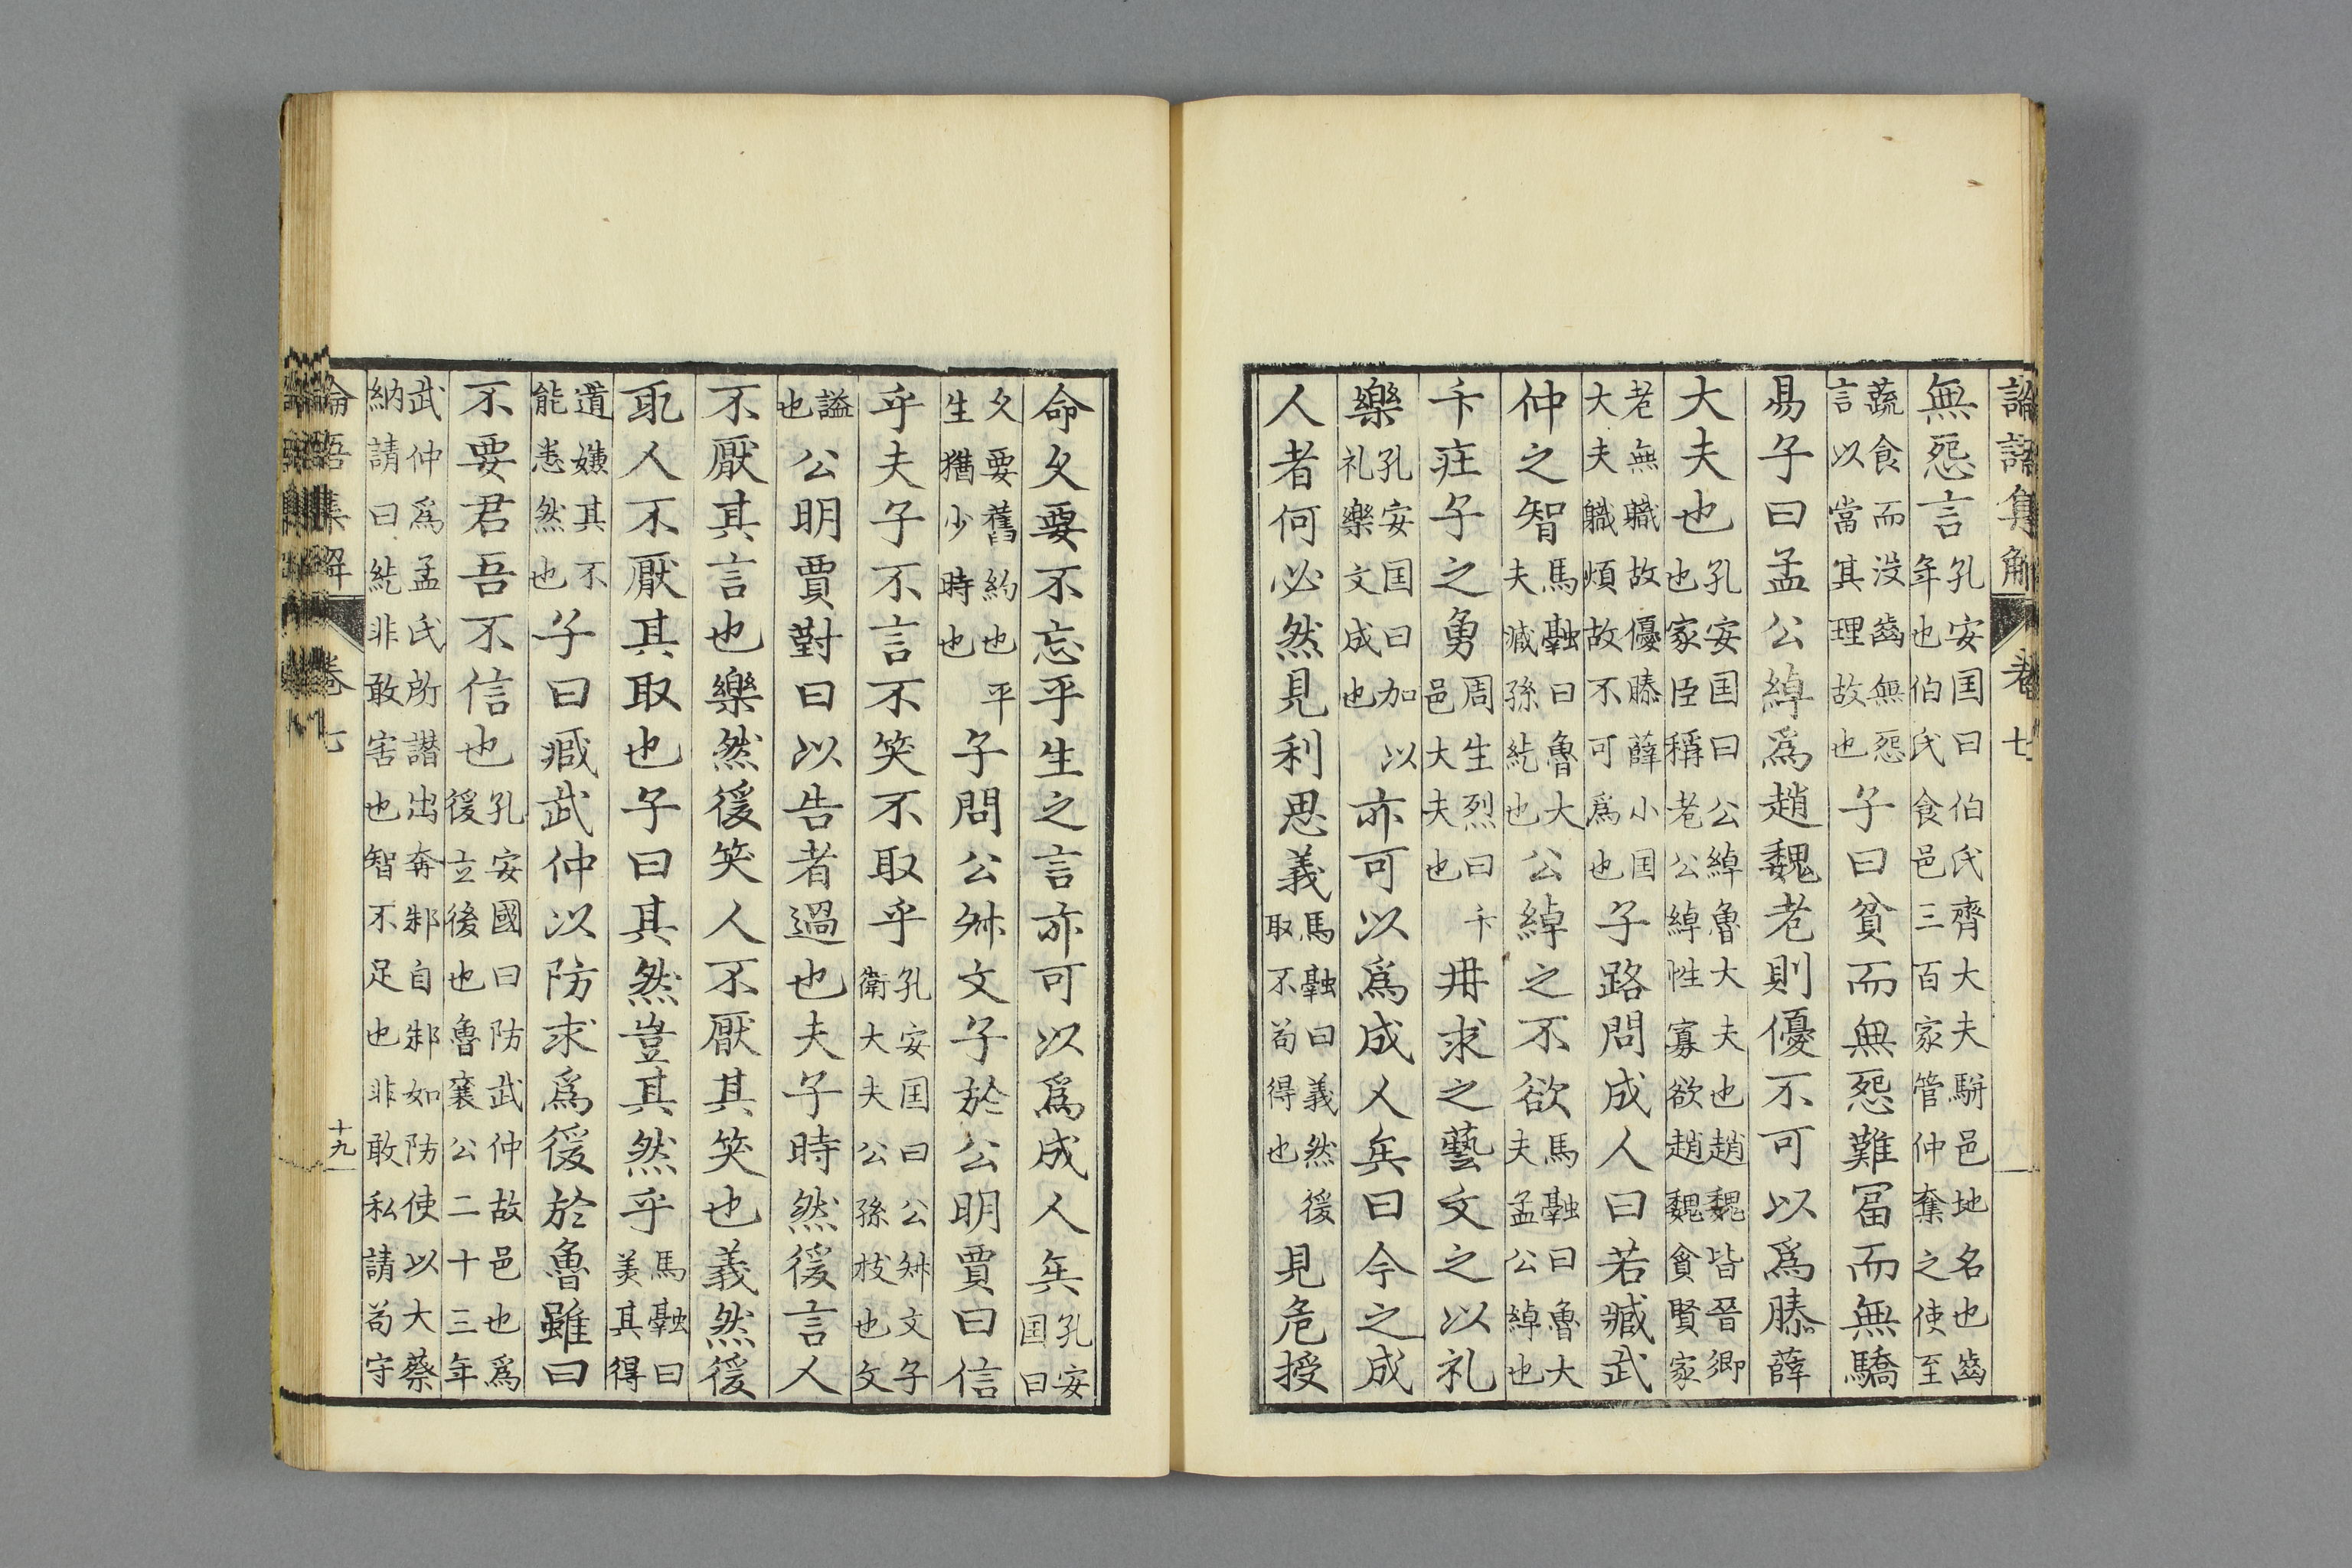 論語集解 卷七
無怨言孔安囯曰伯氏齊大夫駢邑地名也齒年也伯氏食邑三百家管仲奪之使至
蔬食而没齒無怨言以當其理故也子曰貧而無怨難冨而無驕
易子曰孟公綽爲趙魏老則優不可以爲滕薛
大夫也孔安囯曰公綽魯大夫也趙魏皆晉卿也家臣稱老公綽性寡欲趙魏貪賢家
老無職故優滕薛小囯大夫職煩故不可爲也子路問成人曰若臧武
仲之智馬融曰魯大夫臧孫紇也公綽之不欲馬融曰魯大夫孟公綽也
卞莊子之勇周生烈曰卞邑大夫也冉求之藝文之以礼
樂孔安囯曰加以礼樂文成也亦可以爲成人矣曰今之成
人者何必然見利思義馬融曰義然後取不苟得也見危授
命久要不忘乎生之言亦可以爲成人矣孔安囯曰
久要舊約也平生猶少時也子問公叔文子於公明賈曰信
乎夫子不言不笑不取乎孔安囯曰公叔文子衛大夫公孫枝也文
謚也公明賈對曰以告者過也夫子時然後言人
不厭其言也樂然後笑人不厭其笑也義然後
取人不厭其取也子曰其然豈其然乎馬融曰美其得
道嫌其不能悉然也子曰臧武仲以防求爲後於魯雖曰
不要君吾不信也孔安國曰防武仲故邑也爲後立後也魯襄公二十三年
武仲爲孟氏所譖出奔邾自邾如防使以大蔡納請曰紇非敢害也智不足也非敢私請苟守
論語集解 卷七 十九